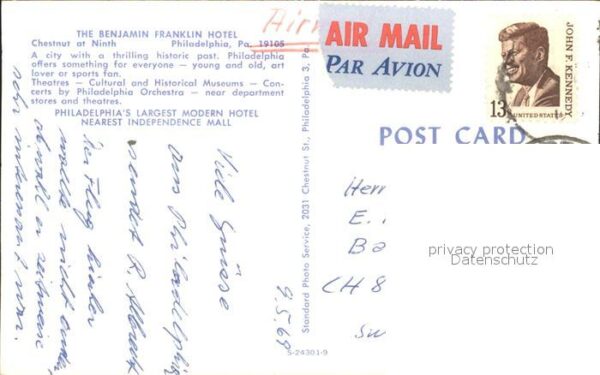 THE BENJAMIN FRANKLIN HOTEL
Chestnut at Ninth Philadelphia, Pa. 19105
A city with a thrilling historic past. Philadelphia
offers something for everyone — young and old, art
lover or sports fan.
Theatres — Cultural and Historical Museums — Con-
certs by Philadelphia Orchestra — near department
stores and theatres.
PHILADELPHIA'S LARGEST MODERN HOTEL
NEAREST INDEPENDENCE MALL
AIR MAIL
PAR AVION
JOHN F. KENNEDY
13¢
UNITED STATES
POST CARD
Viele Grüsse
aus Philadelphia
sendet R.
Der Flug hinter
nicht
obwohl er
sehr interessant war.
9.5.69
Standard Photo Service, 2031 Chestnut St., Philadelphia 3, Pa.
S-24301-9
Herr
E.
Ba
CH 8
SW
privacy protection
Datenschutz